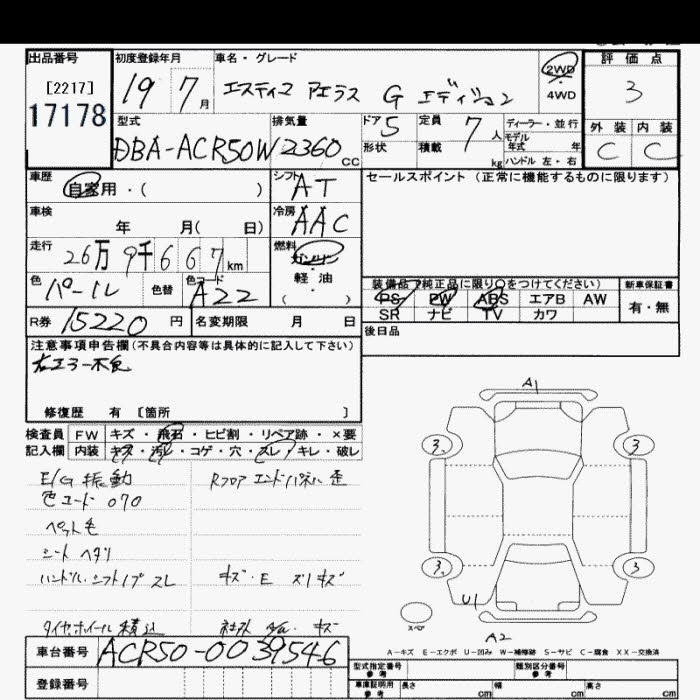 出品番号 初度登録年月 車名・グレード 2WD 評価点
[2217] 19 7月 エスティマ アエラス G エディション 4WD 3
17178
型式 排気量 ドア 5 定員 7人 ディーラー・並行 外装 内装
DBA-ACR50W 2360cc 形状 積載 kg モデル年式 年 C C
ハンドル 左・右
車歴 自家用・( ) シフト AT セールスポイント (正常に機能するものに限ります)
車検 年 月( 日) 冷房 AAC
走行 26万9千667km 燃料 ガソリン
軽油
( )
色 パール 色替 色コード A22 装備品(純正品に限り○をつけてください) 新車保証書
PS PW ABS エアB AW 有・無
SR ナビ TV カワ
R券 15220円 名変期限 月 日 後日品
注意事項申告欄(不具合内容等は具体的に記入して下さい)
右ミラー不良
修復歴 有 [箇所 ]
検査員 FW キズ・飛石・ヒビ割・リペア跡・×要
記入欄 内装 キズ・汚れ・コゲ・穴・スレ・キレ・破レ
E/G 振動 Rフロア エンドパネル 歪
色コード 070
ペット毛
シート ヘタリ
ハンドル・シフトノブ スレ キズ・E スリキズ
タイヤホイール積込 社外 キズ
A1
3. 3
3. 3
U1
スペア
A2
A-キズ E-エクボ U-凹み W-補修跡 S-サビ C-腐食 XX-交換済
車台番号 ACR50-0039546
登録番号
型式指定番号 参考 類別区分番号 参考
車庫証明用 参考 長さ cm 幅 cm 高さ cm